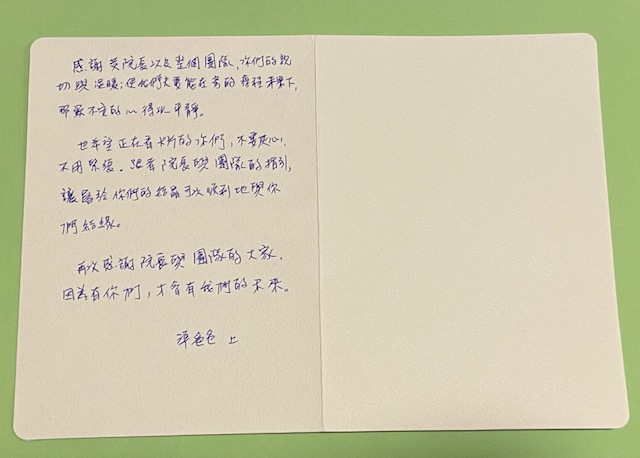 感謝 院長以及整個團隊,你們的親
切與溫暖;使我們夫妻能在 的療程 下,
那顆不安的心得以平靜。
也希望正在看卡片的你們,不要灰心,
不用緊張。跟著院長與團隊的指引,
讓屬於你們的結晶可以順利地與你
們結緣。
再次感謝院長與團隊的大家,
因為有你們,才會有我們的未來。
準爸爸 上